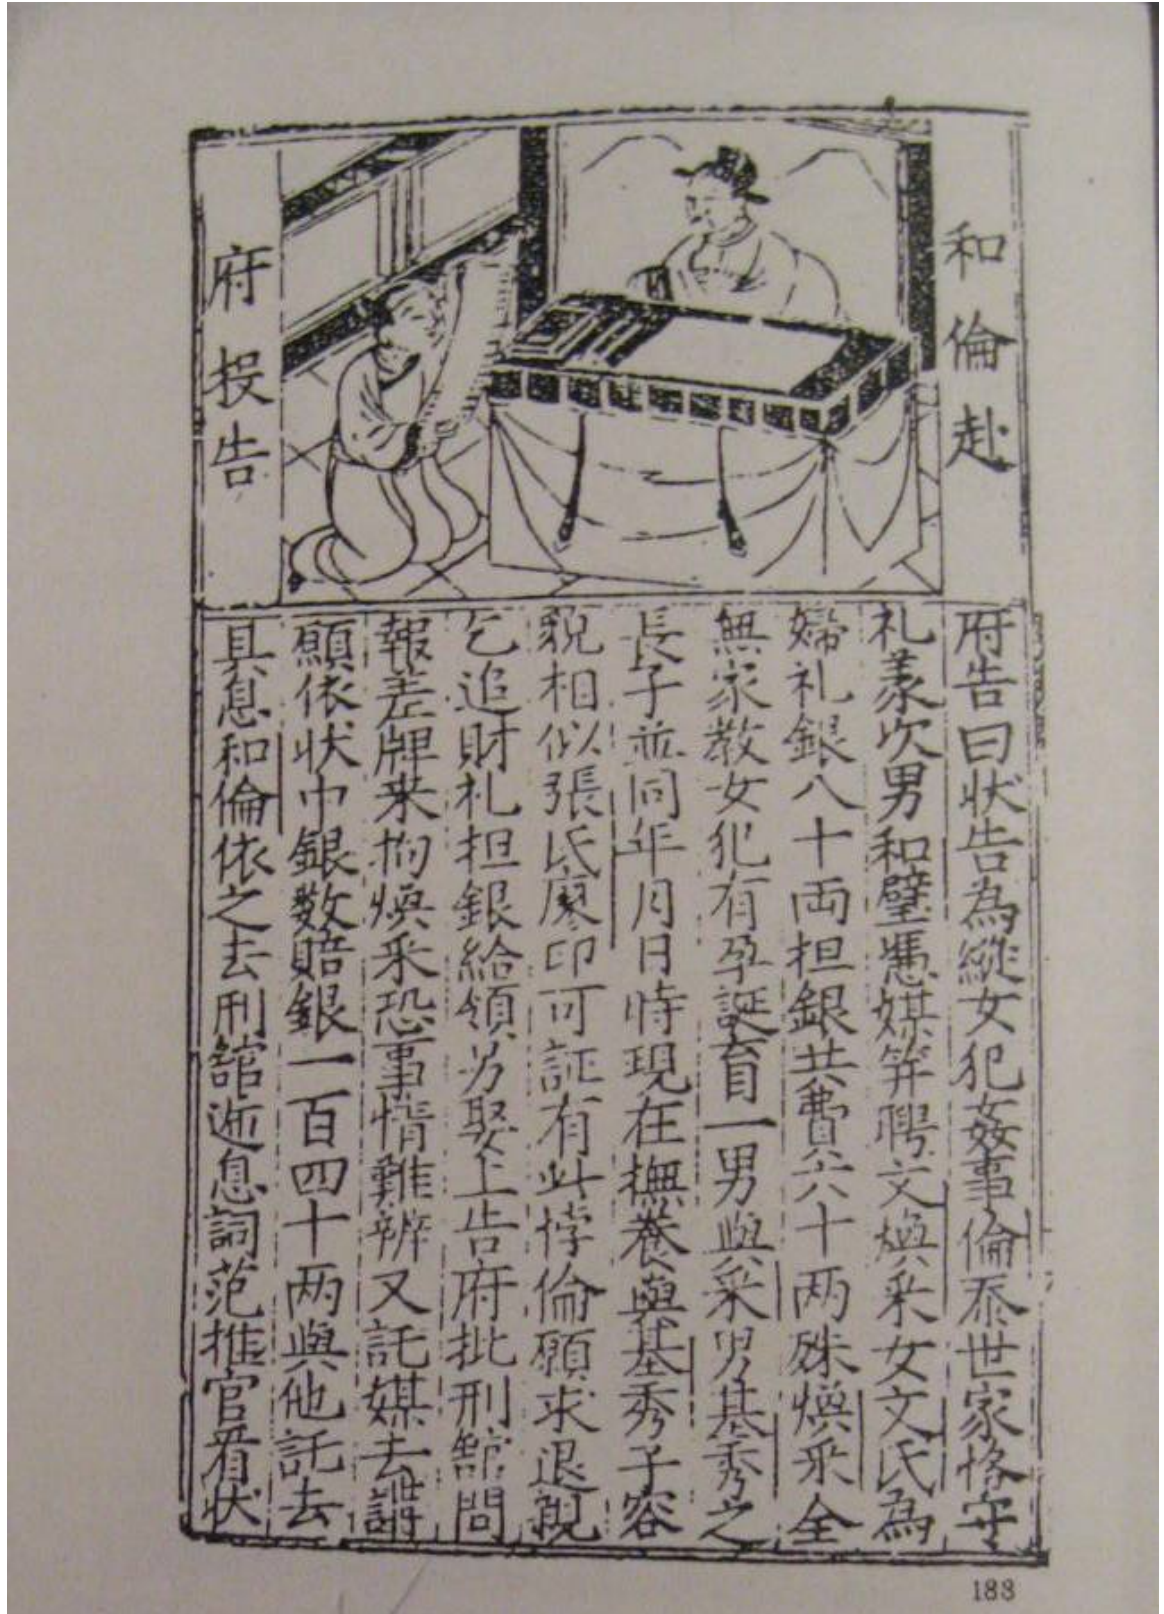 和倫赴
府投告
府告曰狀告為縱女犯姦事倫忝世家恪守
礼義次男和璧憑媒笄聘文煥采女文氏為
婦礼銀八十両担銀共費六十两殊煥采全
無家教女犯有孕誕育一男與采男基秀之
長子並同年月日時現在撫養與基秀子容
貌相似張氏廖印可証有此悖倫願求退親
乞追財礼担銀給領另娶上告府批刑舘問
報差牌来拘煥采恐事情難辨又託媒去講
願依状中銀数賠銀一百四十两與他託去
具息和倫依之去刑舘逓息詞范推官看状
188